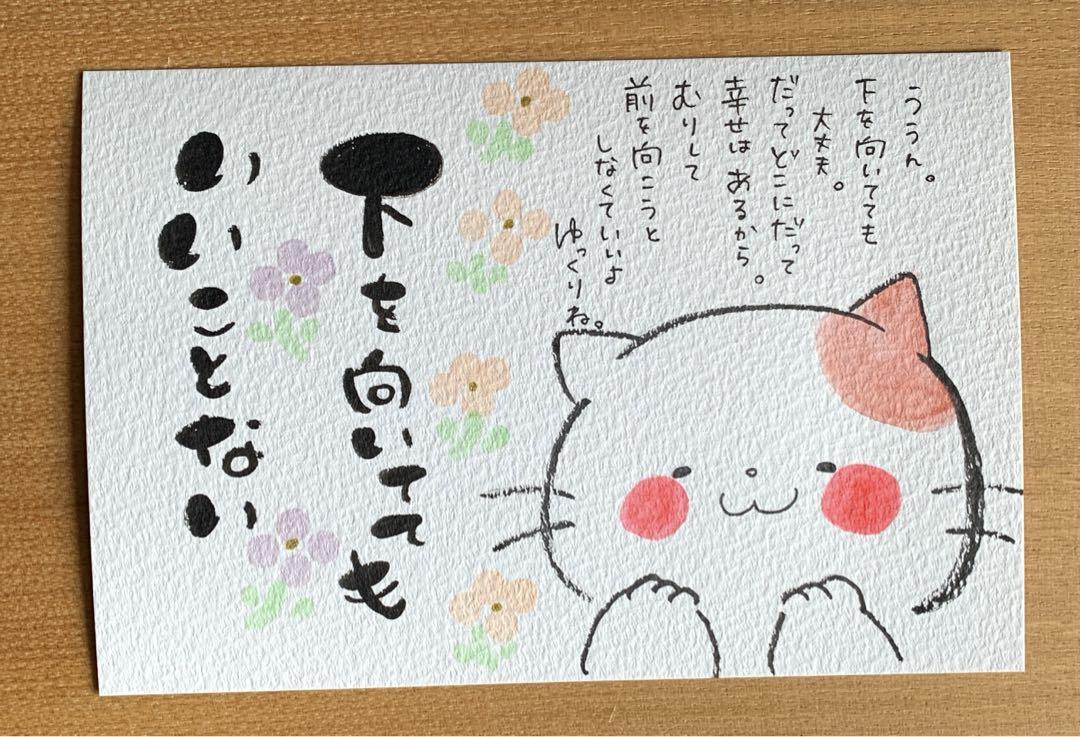 ううん。
下を向いてても
大丈夫。
だってどこにだって
幸せはあるから。
むりして
前を向こうと
しなくていいよ
ゆっくりね。
下を向いても
いいことない